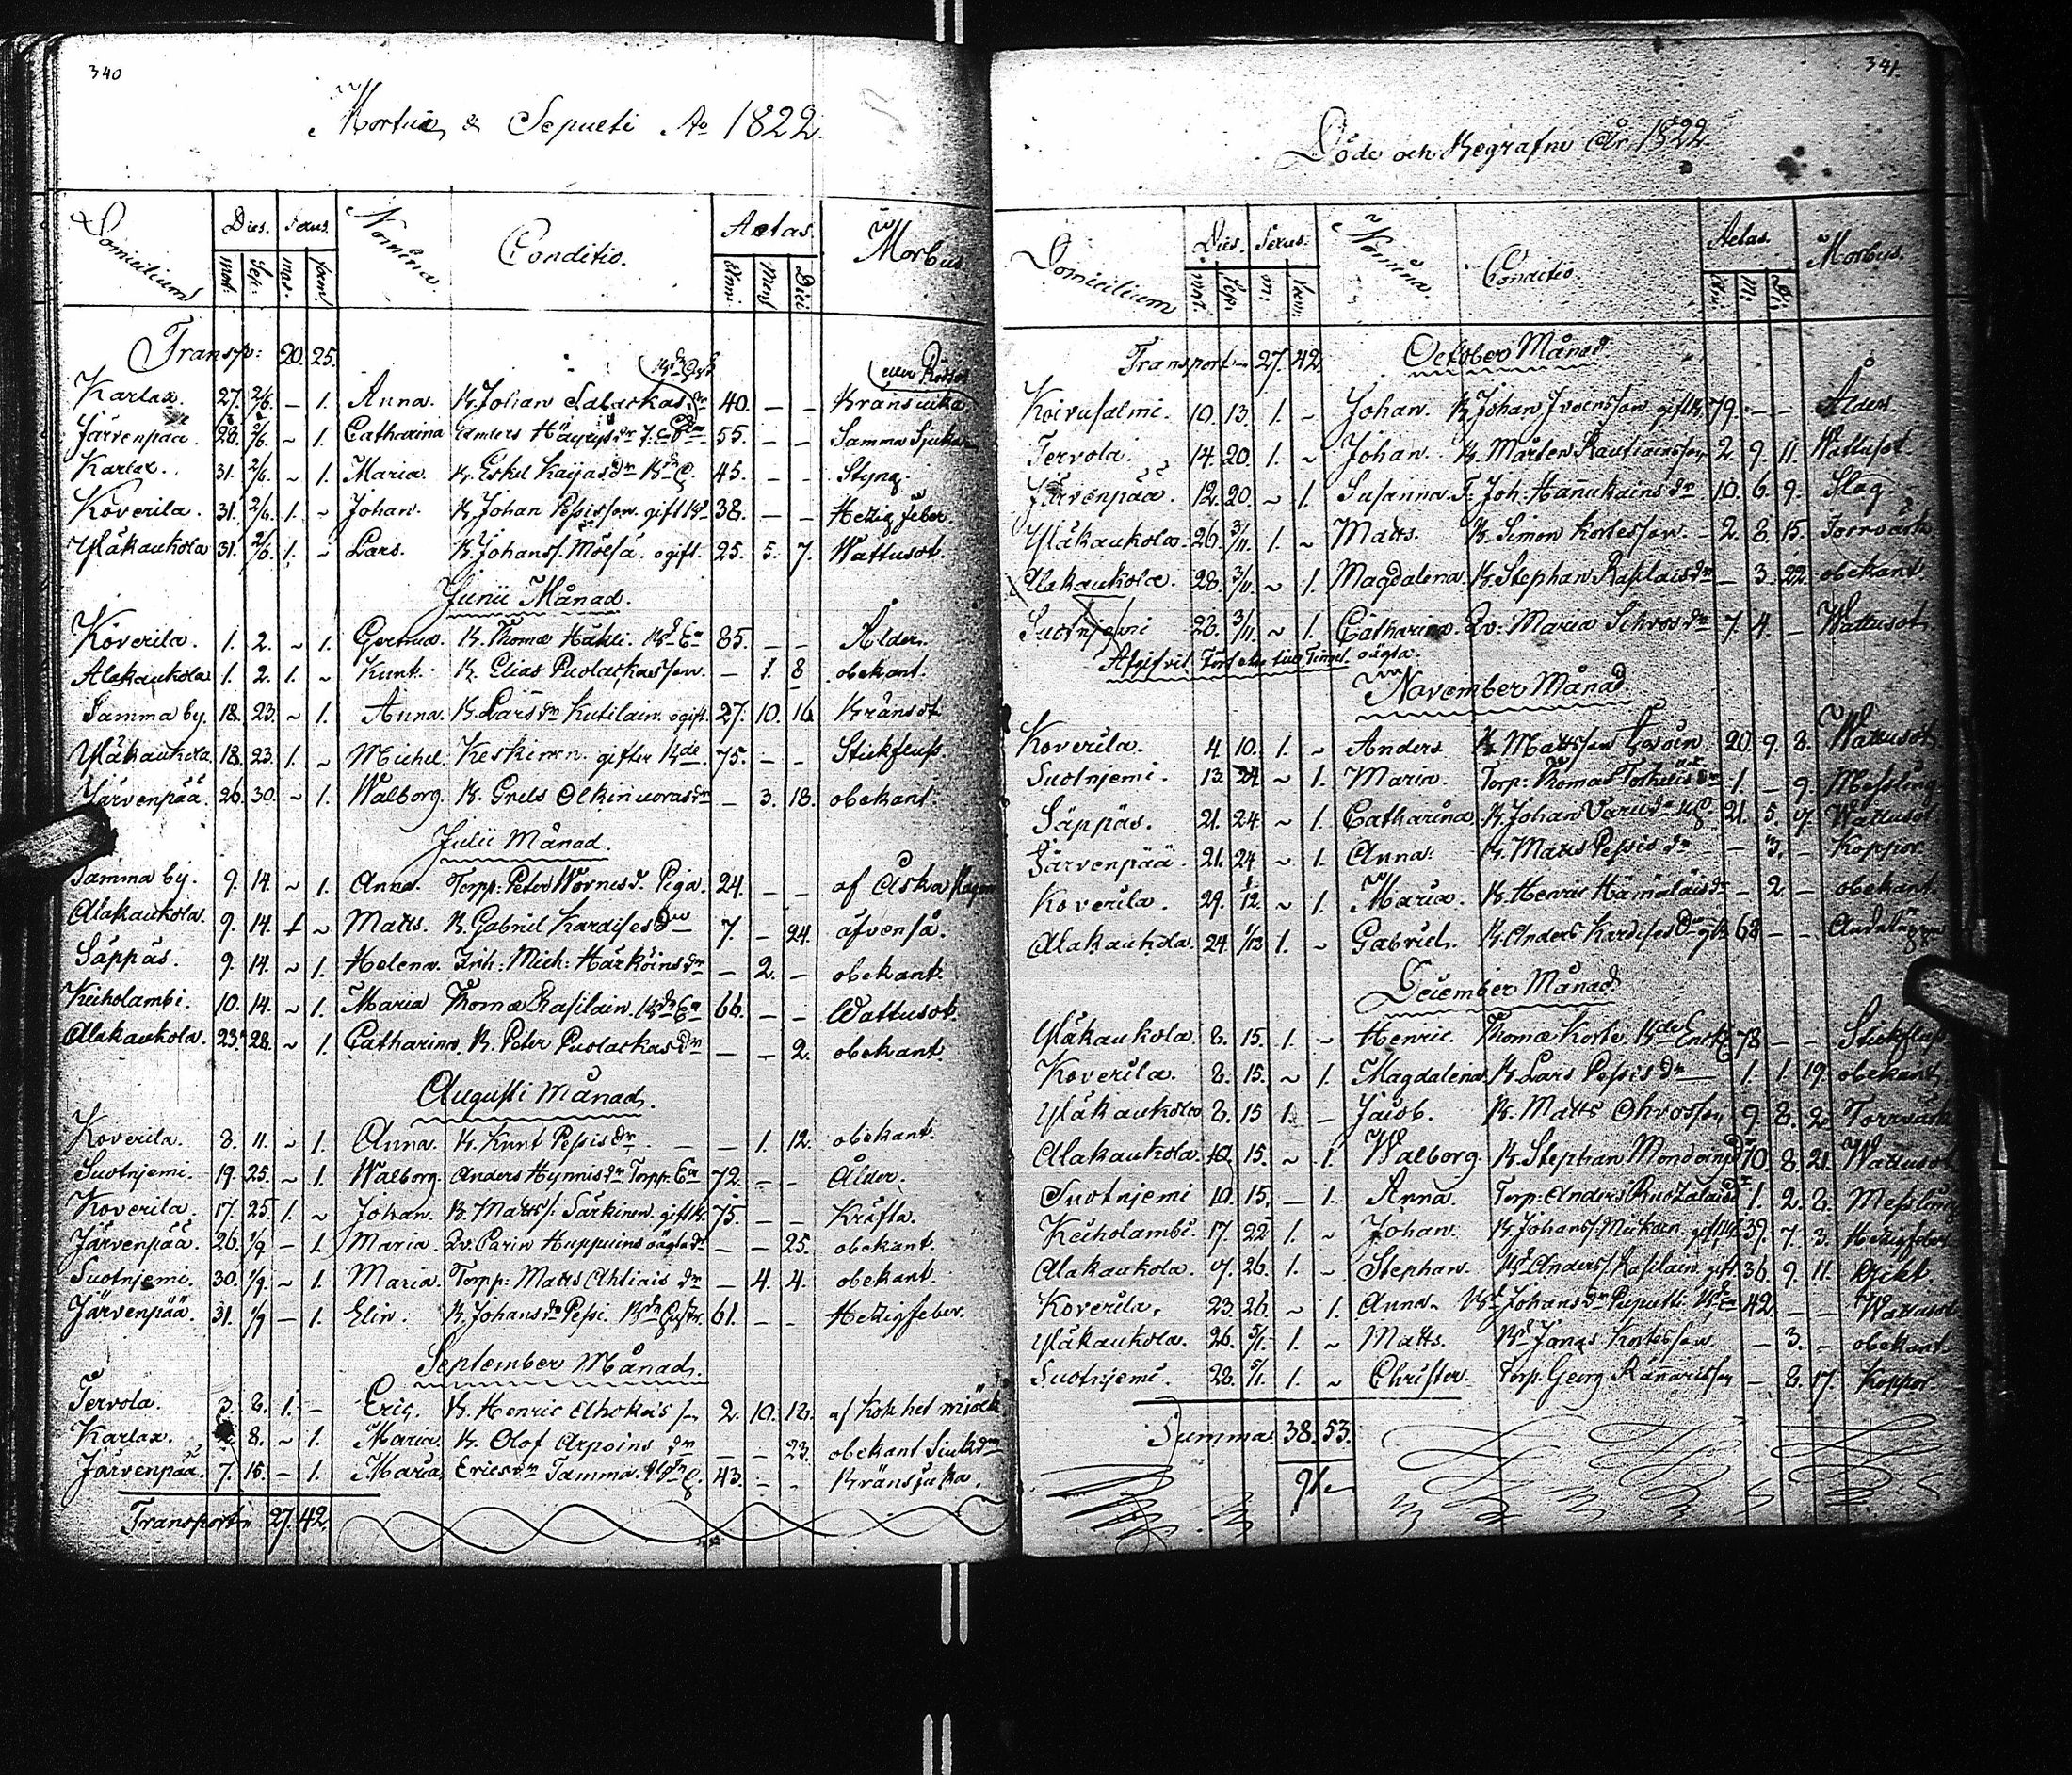 340
Mortui & Sepulti Ao 1822.
Domicilium Dies. Sexus. Nomina. Conditio. Aetas. Morbus.
mort: Sep: mas. foem. Anni. Mens. Diei.
Transp: 20. 25.
eller Rödsot
Karlax. 27. 2/6. – 1. Anna. B. Johan Salackas dr 40. – – Bränsiuka
Järvenpää. 28. 2/6. ~ 1. Catharina Anders Häyrys dr 55. – – Samma Sjukd
Karlax. 31. 2/6. ~ 1. Maria. B. Eskel Kaijas dr 45. – – Styng.
Koverila. 31. 2/6. 1. ~ Johan. B. Johan Pessisson. gift 38. – – Hetzig feber.
Yläkaukola 31. 2/6. 1. ~ Lars. B. Johans s. Mölsä. ogift. 25. 5. 7. Wattusot.
Junii Månad.
Koverila. 1. 2. ~ 1. Gertrud. B. Thomæ Häkli. Bd Ea 85. – – Ålder.
Alakaukola 1. 2. 1. ~ Knut. B. Elias Puolackasson. – 1. 8 obekant.
Samma by. 18. 23. ~ 1. Anna. B. Lars dr Kutilain. ogift. 27. 10. 16. Bränsot
Yläkaukola. 18. 23. 1. ~ Michel. Keskinen. gifter Bde 75. – – Stickfluss.
Järvenpää. 26. 30. ~ 1. Walborg. B. Grels Olkinuoras dr – 3. 18. obekant.
Julii Månad.
Samma by. 9. 14. ~ 1. Anna. Torpp: Peter Wornes d. Piga. 24. – – af Åska slagen
Alakaukola. 9. 14. 1 ~ Matts. B. Gabriel Kardises 7. – 24. äfvenså.
Säppäs. 9. 14. ~ 1. Helena. Inh: Mich: Härköins dr – 2. – obekant.
Kiiholambi. 10. 14. ~ 1. Maria Thomæ Rasilain. Bd Ea 66. – – Wattusot.
Alakaukola. 23. 28. ~ 1. Catharina. B. Peter Puolackas dr – – 2. obekant.
Augusti Månad.
Koverila. 8. 11. ~ 1. Anna. B. Knut Pessis dr – 1. 12. obekant.
Suotnjemi. 19. 25. ~ 1. Walborg. Anders Hynnis dr Torpp. Ea 72. – – Ålder.
Koverila. 17. 25. 1. ~ Johan. B. Matts s. Särkinen. gift B. 75. – – Kräfta.
Järvenpää. 26. 1/9 – 1. Maria. Qv. Carin Huppuins oägta dr – – 25. obekant.
Suotnjemi. 30. 1/9. ~ 1. Maria. Torpp: Matts Ahtiais dr – 4. 4. obekant
Järvenpää. 31. 1/9 – 1. Elin. B. Johans dr Pessi. Bd Hustr. 61. – – Hetzigfeber.
September Månad.
Tervola. 3. 8. 1. – Eric. B. Henric Elhokas s. 2. 10. 12. af kok het mjölk
Karlax. 8. ~ 1. Maria. B. Olof Arpoins dr – – 23. obekant Siukdm
Järvenpää. 7. 15. – 1. Maria Ericsdr Tamma. 43. – – Bränsjuka.
Transport 27. 42.
341.
Döde och Begrafne År 1822.
Domicilium Dies. Sexus. Nomina. Conditio Aetas. Morbus.
mort. Sep. m: foem. An. M: Di:
Transport – 27. 42. October Månad
Koivusalmi. 10. 13. 1. – Johan. B. Johan Ivoinsson. gift B. 79. – – Ålder.
Tervola. 14. 20. 1. ~ Johan. B. Mårten Rautiainsson 2. 9. 11 Wattusot.
Järvenpää. 12. 20. ~ 1. Susanna. T: Joh. Hannukains dr 10. 6. 9. Slag.
Yläkaukola. 26. 3/11. 1. ~ Matts. B. Simon Kortesson. – 2. 8. 15. Torrvärk
Alakaukola. 28. 3/11. ~ 1. Magdalena. B. Stephan Rasilais dr – 3. 22. obekant
Suotnjemi 23. 3/11. ~ 1. Catharina Qv: Maria Ihvos dr 7. 4. – Wattusot
oägta.
November Månad
Koverila. 4. 10. 1. ~ Anders B. Mattsson 20. 9. 8. Wattusot
Suotnjemi. 13. 24. ~ 1. Maria. Torp: Thomas Torkelis dr 1. – 9. Messling
Säppäs. 21. 24. ~ 1. Catharina B. Johan Varis dr 21. 5. 7. Wattusot
Järvenpää. 21. 24. ~ 1. Anna. B. Matts Pessis dr – 3. – Koppor
Koverila. 29. 1/12. ~ 1. Maria. B. Henric Hämäläis dr – 2. – obekant.
Alakaukola. 24. 1/12 1. – Gabriel. B. Anders Kardises 63 – –
December Månad
Yläkaukola. 8. 15. 1. ~ Henric. Thomæ Korte. Bde Enkl 78 – – Stickfluss
Koverila. 8. 15. ~ 1. Magdalena. B. Lars Pessis dr 1. 1. 19. obekant
Yläkaukola 8. 15 1. – Jacob. B. Matts Ohvosson 9. 8. 2. Torrvärk
Alakaukola. 10. 15. ~ 1. Walborg. B. Stephan 70. 8. 21. Wattusot
Suotnjemi 10. 15. – 1. Anna. Torp: Anders 1. 2. 8. Messling
Kiiholambi. 17. 22 1. ~ Johan. B. Johans s. 39. 7. 3. Hetzigfeber
Alakaukola. 17. 26. 1. ~ Stephan. Bd Anders s. Rasilain. gift 36. 9. 11.
Koverila. 23. 26. ~ 1. Anna. Bd Johans dr Puputti Bd Ea 42. – – Wattusot
Yläkaukola. 26. 5/1. 1. ~ Matts. Bd Jonas Kortesson – 3. – obekant.
Suotnjemi. 28. 5/1. 1. ~ Christer. Torp. Georg – 8. 17. Koppor
Summa 38. 53.
91.